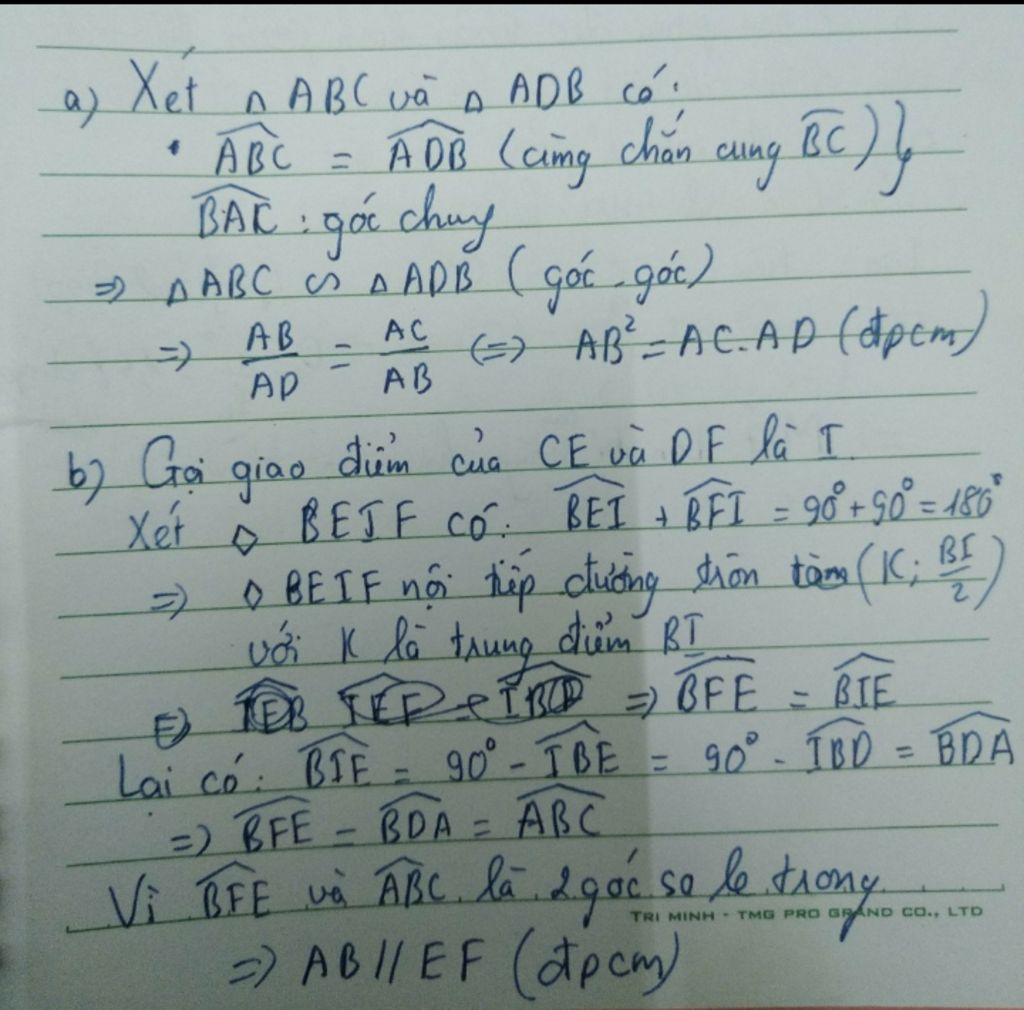 a) Xét △ ABC và △ ADB có:
• \widehat{ABC} = \widehat{ADB} (cùng chắn cung \widehat{BC}) }
\widehat{BAC} : góc chung
=> △ ABC ∽ △ ADB (góc - góc)
=> \frac{AB}{AD} = \frac{AC}{AB} (=) AB² = AC.AD (đpcm)
b) Gọi giao điểm của CE và DF là I.
Xét ◇ BEIF có: \widehat{BEI} + \widehat{BFI} = 90° + 90° = 180°
=> ◇ BEIF nội tiếp đường tròn tâm (K; \frac{BI}{2})
với K là trung điểm BI
=> \widehat{BFE} = \widehat{BIE}
Lại có: \widehat{BIE} = 90° - \widehat{IBE} = 90° - \widehat{IBD} = \widehat{BDA}
=> \widehat{BFE} = \widehat{BDA} = \widehat{ABC}
Vì \widehat{BFE} và \widehat{ABC} là 2 góc so le trong
TRI MINH - TMG PRO GRAND CO., LTD
=> AB // EF (đpcm)